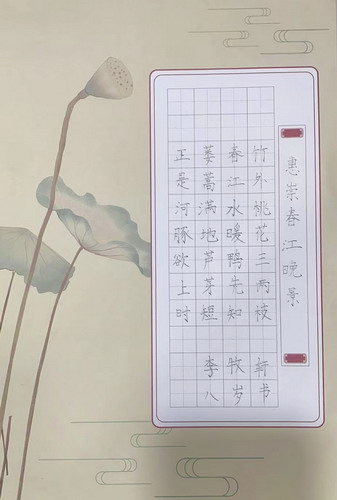 惠崇春江晚景
竹外桃花三两枝
春江水暖鸭先知
蒌蒿满地芦芽短
正是河豚欲上时
李牧轩
八岁书